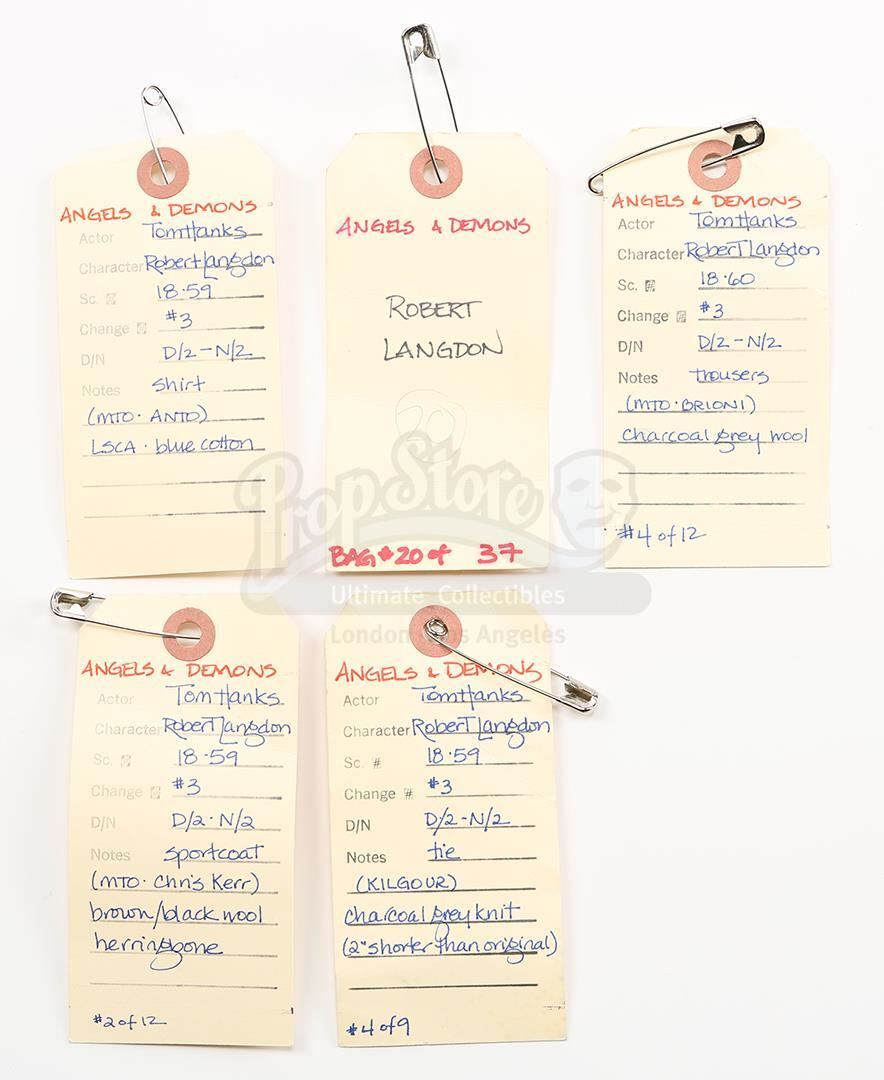 ANGELS & DEMONS
Actor Tom Hanks
Character Robert Langdon
Sc. # 18·59
Change # #3
D/N D/2-N/2
Notes shirt
(MTO· ANTO)
LSCA · blue cotton
ANGELS & DEMONS
ROBERT
LANGDON
BAG # 20 of 37
ANGELS & DEMONS
Actor Tom Hanks
Character Robert Langdon
Sc. # 18·60
Change # #3
D/N D/2-N/2
Notes trousers
(MTO·BRIONI)
charcoal grey wool
#4 of 12
PropStore
Ultimate Collectibles
London Los Angeles
ANGELS & DEMONS
Actor Tom Hanks
Character Robert Langdon
Sc. # 18·59
Change # #3
D/N D/2·N/2
Notes sportcoat
(MTO· Chris Kerr)
brown/black wool
herringbone
#2 of 12
ANGELS & DEMONS
Actor Tom Hanks
Character Robert Langdon
Sc. # 18·59
Change # #3
D/N D/2-N/2
Notes tie
(KILGOUR)
charcoal grey knit
(2" shorter than original)
#4 of 9